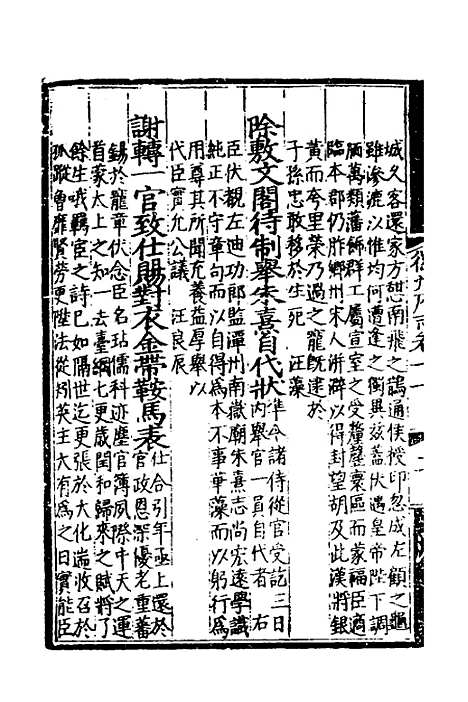 城久客還家方愬南飛之鵲通侯授印忽成左顧之龜
雖滲漉以惟均何遭逢之獨異兹蓋伏遇皇帝陛下調
陶萬類藩飾群工屬宣室之受釐罄寰區而蒙福臣適
臨本郡仍胙鄉州宋人洴澼以得封望胡及此漢將銀
黄而夸里榮乃過之寵既逮於
子孫忠敢移於生死　汪藻
除敷文閣待制舉朱熹自代狀
準令諸侍從官受訖三日
内舉官一員自代者　右
臣伏覩左迪功郎監潭州南嶽廟朱熹志尚宏遠學識
純正不守章句而以自得為本不事華藻而以躬行為
用尊其所聞充養益厚舉以
代臣實允公議　汪良辰
謝轉一官致仕賜對衣金帶鞍馬表
仕合引年亟上還於
官政恩深優老重蕃
錫於寵章伏念臣名玷儒科迹塵官簿風際中天之運
首蒙太上之知一去臺綱七更歲閏和歸來之賦將了
餘生哦羇宦之詩已如隔世迄更張於大化端收召於
孤蹤魯靡賢勞更陞法從拱英主大有為之日實能臣